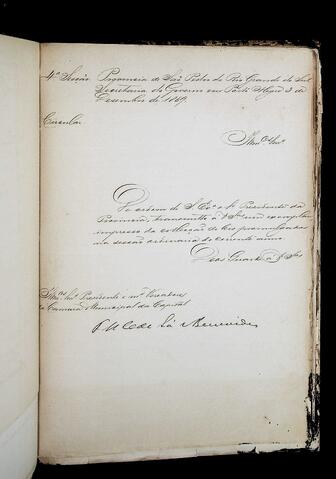 4ª Secção Provincia de São Pedro do Rio Grande do Sul
Secretaria do Governo em Porto Alegre 3 de
Dezembro de 1869.
Circular
Illmos Snrs
De ordem de S. Exª o Sr. Presidente da
Provincia, transmitto a VSas um exemplar
impresso da collecção de leis promulgadas
na sessão ordinaria do corrente anno.
Deos Guarde a VSas
Illmos Snrs Presidente e mais Vereadores
da Camara Municipal da Capital
de Sá Benevides